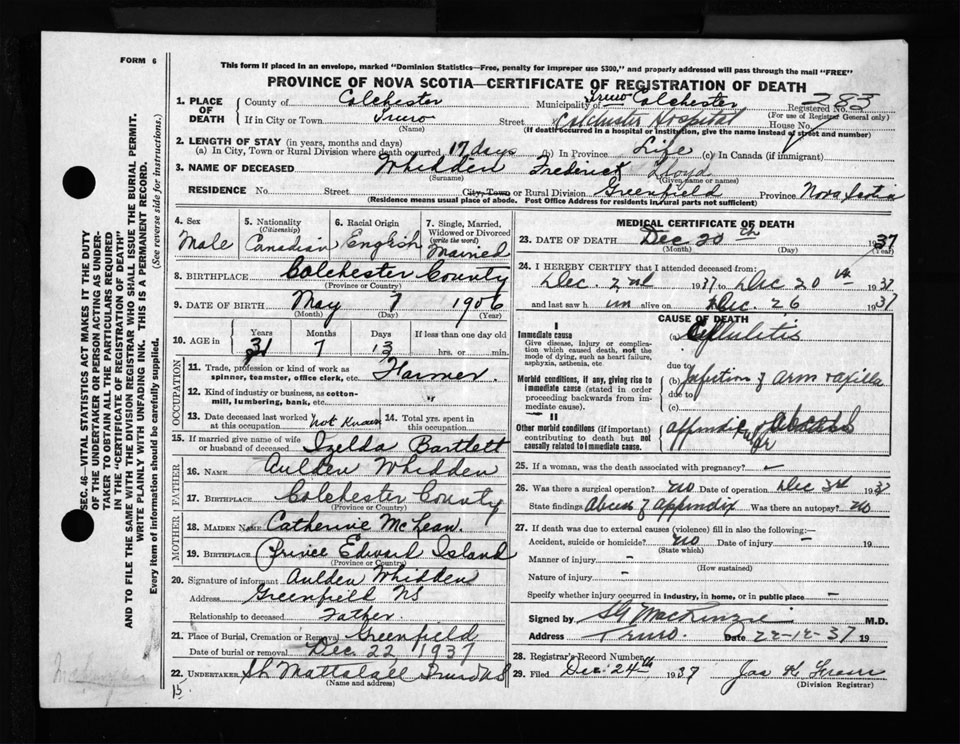 FORM 6
This form if placed in an envelope, marked "Dominion Statistics—Free, penalty for improper use $300," and properly addressed will pass through the mail "FREE"
PROVINCE OF NOVA SCOTIA—CERTIFICATE OF REGISTRATION OF DEATH
1. PLACE OF DEATH County of Colchester Municipality of Truro Colchester Registered No. 283
(For use of Registrar General only)
If in City or Town Truro Street Colchester Hospital House No.
(Name) (If death occurred in a hospital or institution, give the name instead of street and number)
2. LENGTH OF STAY (in years, months and days)
(a) In City, Town or Rural Division where death occurred 17 days (b) In Province Life (c) In Canada (if immigrant)
3. NAME OF DECEASED Whidden Frederick Lloyd
(Surname) (Given name or names)
RESIDENCE No. Street City, Town or Rural Division Greenfield Province Nova Scotia
(Residence means usual place of abode. Post Office Address for residents in rural parts not sufficient)
4. Sex Male
5. Nationality (Citizenship) Canadian
6. Racial Origin English
7. Single, Married, Widowed or Divorced (write the word) Married
8. BIRTHPLACE Colchester County
(Province or Country)
9. DATE OF BIRTH May 7 1906
(Month) (Day) (Year)
10. AGE in Years Months Days If less than one day old
31 7 13 hrs. or min.
OCCUPATION
11. Trade, profession or kind of work as spinner, teamster, office clerk, etc. Farmer.
12. Kind of industry or business, as cotton-mill, lumbering, bank, etc. "
13. Date deceased last worked at this occupation Not Known
14. Total yrs. spent in this occupation
15. If married give name of wife or husband of deceased Izelda Bartlett
FATHER
16. NAME Aulden Whidden
17. BIRTHPLACE Colchester County
(Province or Country)
MOTHER
18. MAIDEN NAME Catherine McLean.
19. BIRTHPLACE Prince Edward Island
(Province or Country)
20. Signature of informant Aulden Whidden
Address Greenfield NS
Relationship to deceased Father.
21. Place of Burial, Cremation or Removal Greenfield
Date of burial or removal Dec. 22 1937
22. UNDERTAKER Mattatall Truro NS
(Name and address)
MEDICAL CERTIFICATE OF DEATH
23. DATE OF DEATH Dec 20th 1937
(Month) (Day) (Year)
24. I HEREBY CERTIFY that I attended deceased from:
Dec. 2nd 1937 to Dec 20th 1937
and last saw him alive on Dec. 1937
CAUSE OF DEATH
I
Immediate cause
Give disease, injury or complication which caused death, not the mode of dying, such as heart failure, asphyxia, asthenia, etc
(a) Cellulitis
due to
Morbid conditions, if any, giving rise to immediate cause (stated in order proceeding backwards from immediate cause).
(b) Infection of arm & axilla
due to
(c)
II
Other morbid conditions (if important) contributing to death but not causally related to immediate cause.
appendix abscess
25. If a woman, was the death associated with pregnancy? -
26. Was there a surgical operation? no Date of operation Dec 3rd 1937
State findings Abcess of Appendix Was there an autopsy? no
27. If death was due to external causes (violence) fill in also the following:—
Accident, suicide or homicide? no Date of injury - 19
(State which)
Manner of injury -
(How sustained)
Nature of injury -
Specify whether injury occurred in industry, in home, or in public place -
Signed by MacKenzie M.D.
Address Truro. Date 22-12-37 19
28. Registrar's Record Number
29. Filed Dec. 24th 1937 Jas
(Division Registrar)
SEC. 46—VITAL STATISTICS ACT MAKES IT THE DUTY
OF THE UNDERTAKER OR PERSON ACTING AS UNDER-
TAKER TO OBTAIN ALL THE PARTICULARS REQUIRED
IN THE "CERTIFICATE OF REGISTRATION OF DEATH"
AND TO FILE THE SAME WITH THE DIVISION REGISTRAR WHO SHALL ISSUE THE BURIAL PERMIT.
WRITE PLAINLY WITH UNFADING INK. THIS IS A PERMANENT RECORD.
Every item of information should be carefully supplied. (See reverse side for instructions.)